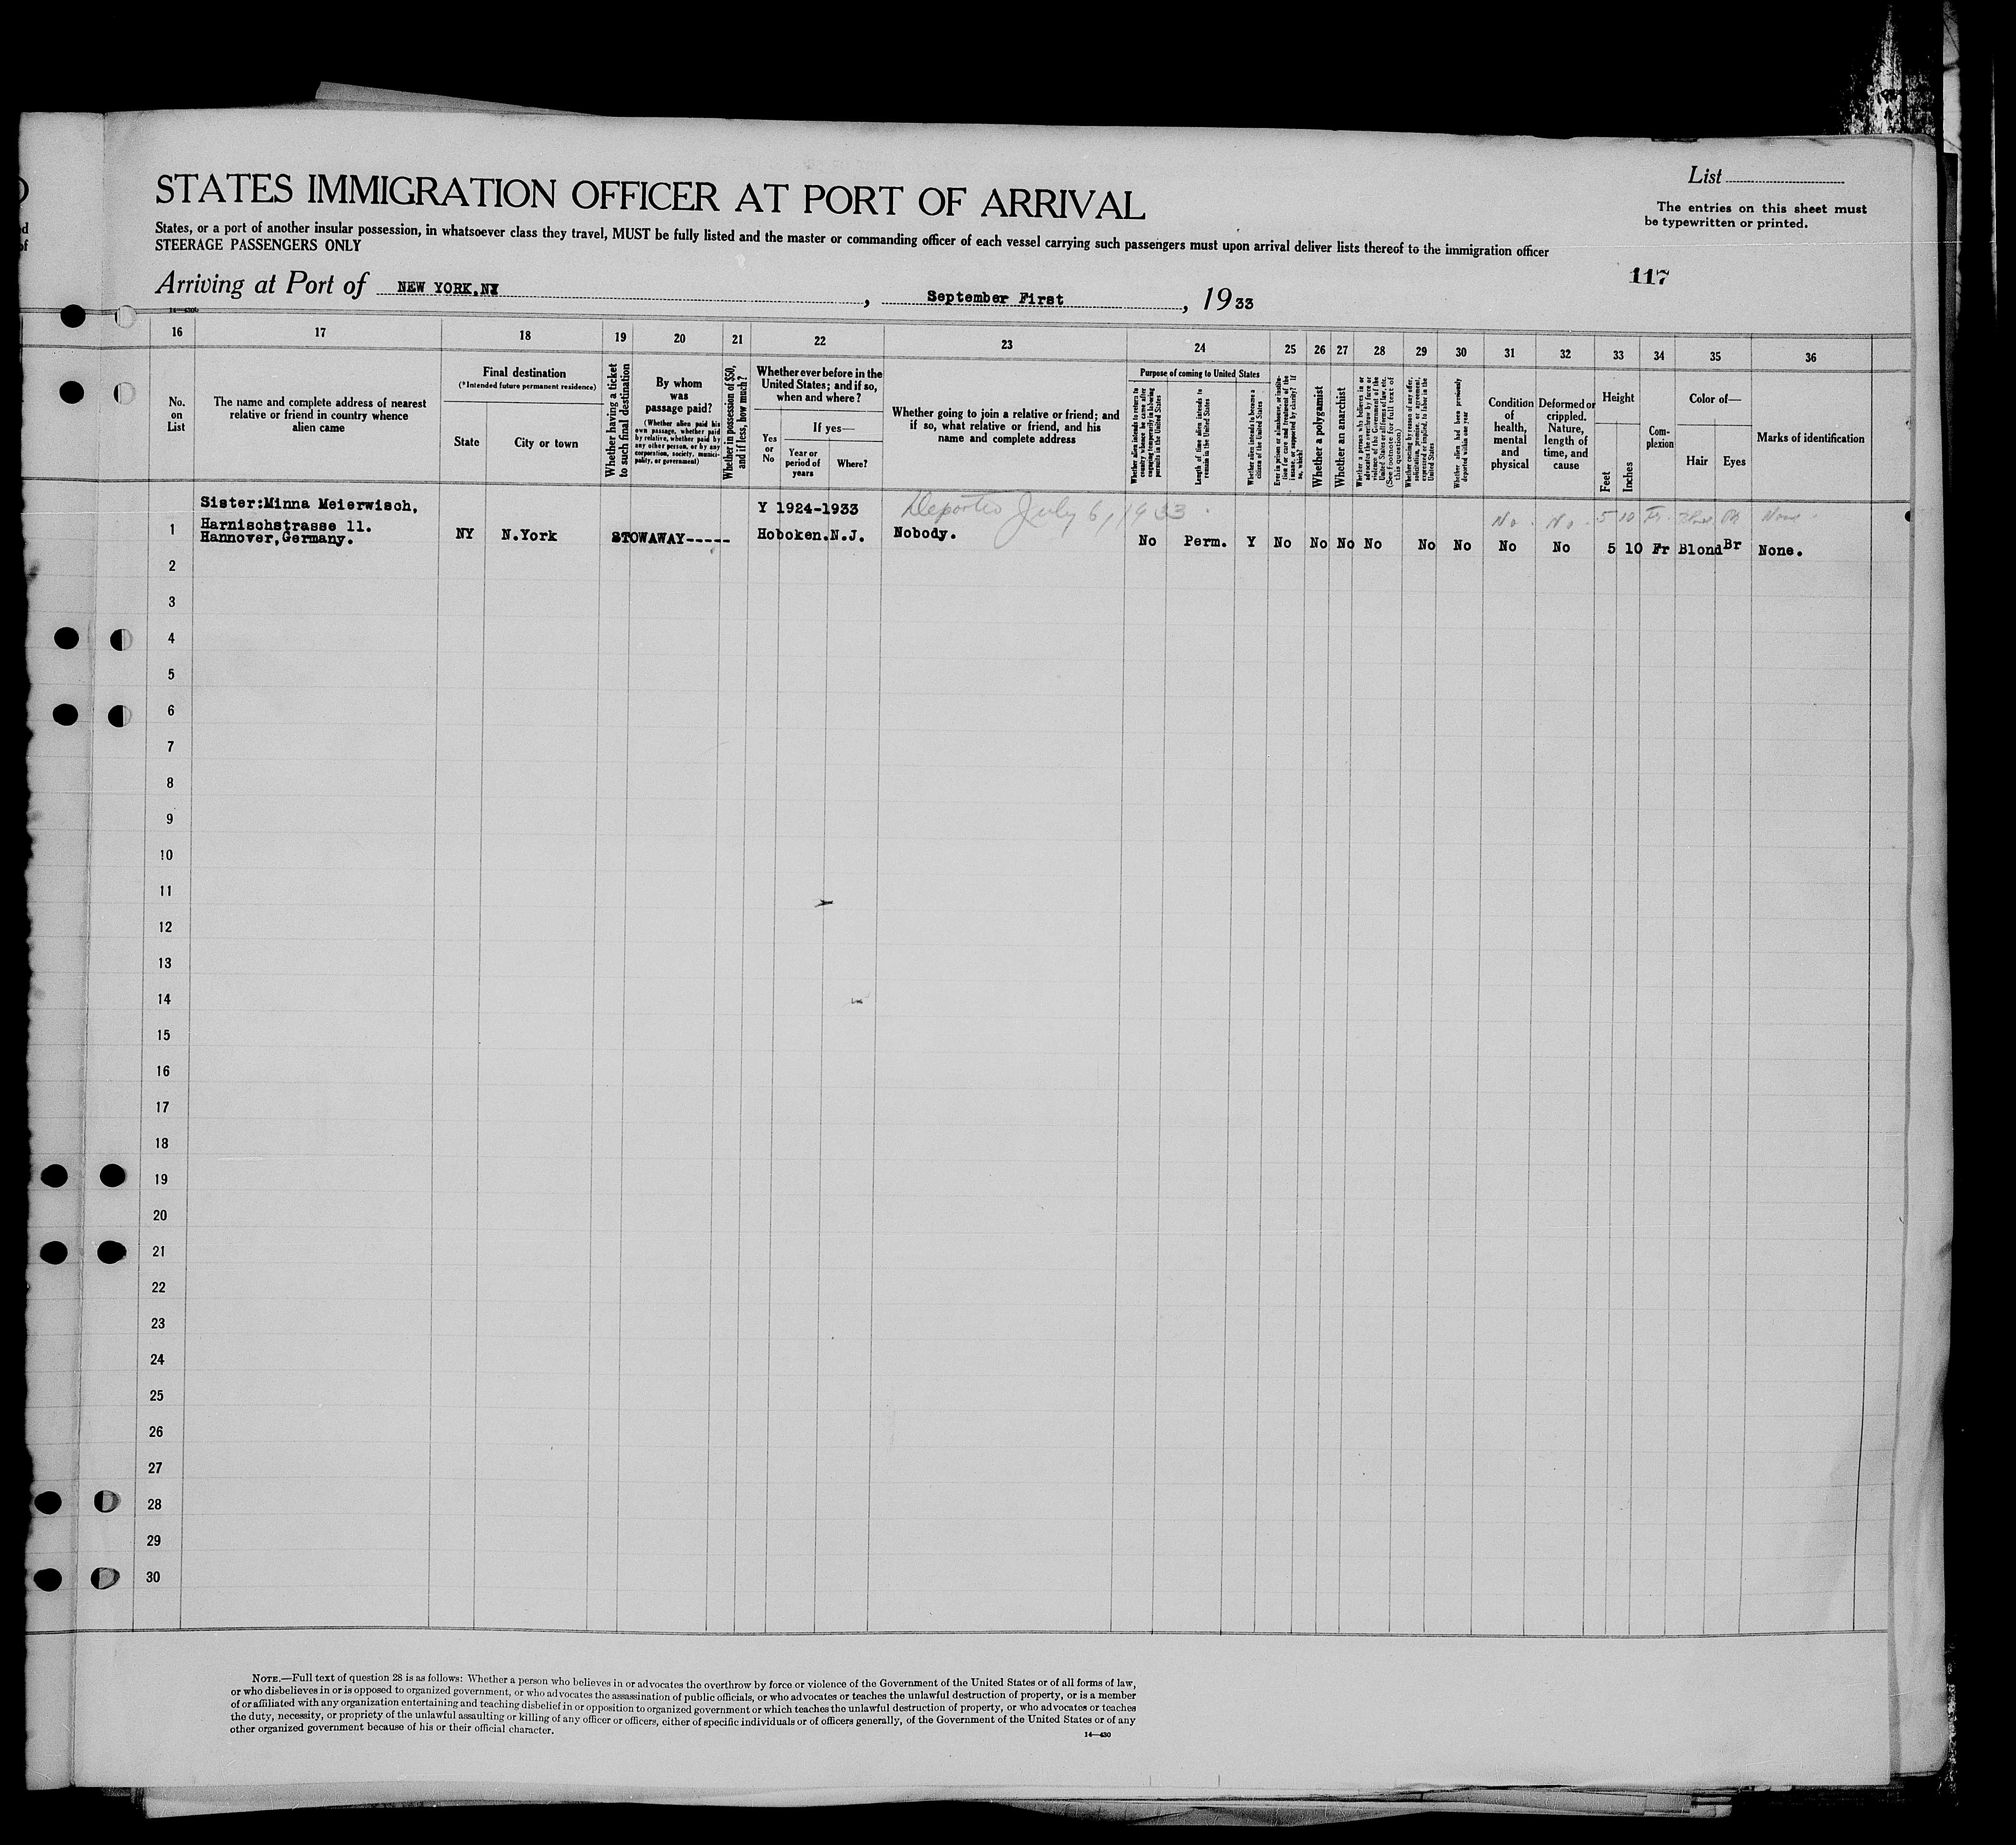 STATES IMMIGRATION OFFICER AT PORT OF ARRIVAL
List
The entries on this sheet must
be typewritten or printed.
States, or a port of another insular possession, in whatsoever class they travel, MUST be fully listed and the master or commanding officer of each vessel carrying such passengers must upon arrival deliver lists thereof to the immigration officer
STEERAGE PASSENGERS ONLY
117
Arriving at Port of NEW YORK.NY, September First, 1933
16 17 18 19 20 21 22 23 24 25 26 27 28 29 30 31 32 33 34 35 36
No.
on
List
The name and complete address of nearest
relative or friend in country whence
alien came
Final destination
(*Intended future permanent residence)
State
City or town
Whether having a ticket
to such final destination
By whom
was
passage paid?
(Whether alien paid his
own passage, whether paid
by relative, whether paid by
any other person, or by any
corporation, society, munici-
pality, or government)
Whether in possession of $50,
and if less, how much?
Whether ever before in the
United States; and if so,
when and where?
Yes
or
No
If yes—
Year or
period of
years
Where?
Whether going to join a relative or friend; and
if so, what relative or friend, and his
name and complete address
Purpose of coming to United States
Whether alien intends to return to
country whence he came after
engaging temporarily in laboring
pursuits in the United States
Length of time alien intends to
remain in the United States
Whether alien intends to become a
citizen of the United States
Ever in prison or almshouse, or institu-
tion for care and treatment of the
insane, or supported by charity? If
so, which?
Whether a polygamist
Whether an anarchist
Whether a person who believes in or
advocates the overthrow by force or
violence of the Government of the
United States or all forms of law, etc.
(See footnote for full text of
this question)
Whether coming by reason of any offer,
solicitation, promise, or agreement,
expressed or implied, to labor in the
United States
Whether alien had been previously
deported within one year
Condition
of
health,
mental
and
physical
Deformed or
crippled.
Nature,
length of
time, and
cause
Height
Feet
Inches
Com-
plexion
Color of—
Hair
Eyes
Marks of identification
Sister:Minna Meierwisch,
Y 1924-1933
Deported July 6, 1933.
No. No. 5 10 Fr. Blond Br None.
1
Harnischstrasse 11.
Hannover,Germany.
NY N.York STOWAWAY----- Hoboken.N.J. Nobody. No Perm. Y No No No No No No No No 5 10 Fr Blond Br None.
2
3
4
5
6
7
8
9
10
11
12
13
14
15
16
17
18
19
20
21
22
23
24
25
26
27
28
29
30
NOTE.—Full text of question 28 is as follows: Whether a person who believes in or advocates the overthrow by force or violence of the Government of the United States or of all forms of law,
or who disbelieves in or is opposed to organized government, or who advocates the assassination of public officials, or who advocates or teaches the unlawful destruction of property, or is a member
of or affiliated with any organization entertaining and teaching disbelief in or opposition to organized government or which teaches the unlawful destruction of property, or who advocates or teaches
the duty, necessity, or propriety of the unlawful assaulting or killing of any officer or officers, either of specific individuals or of officers generally, of the Government of the United States or of any
other organized government because of his or their official character.
14—430